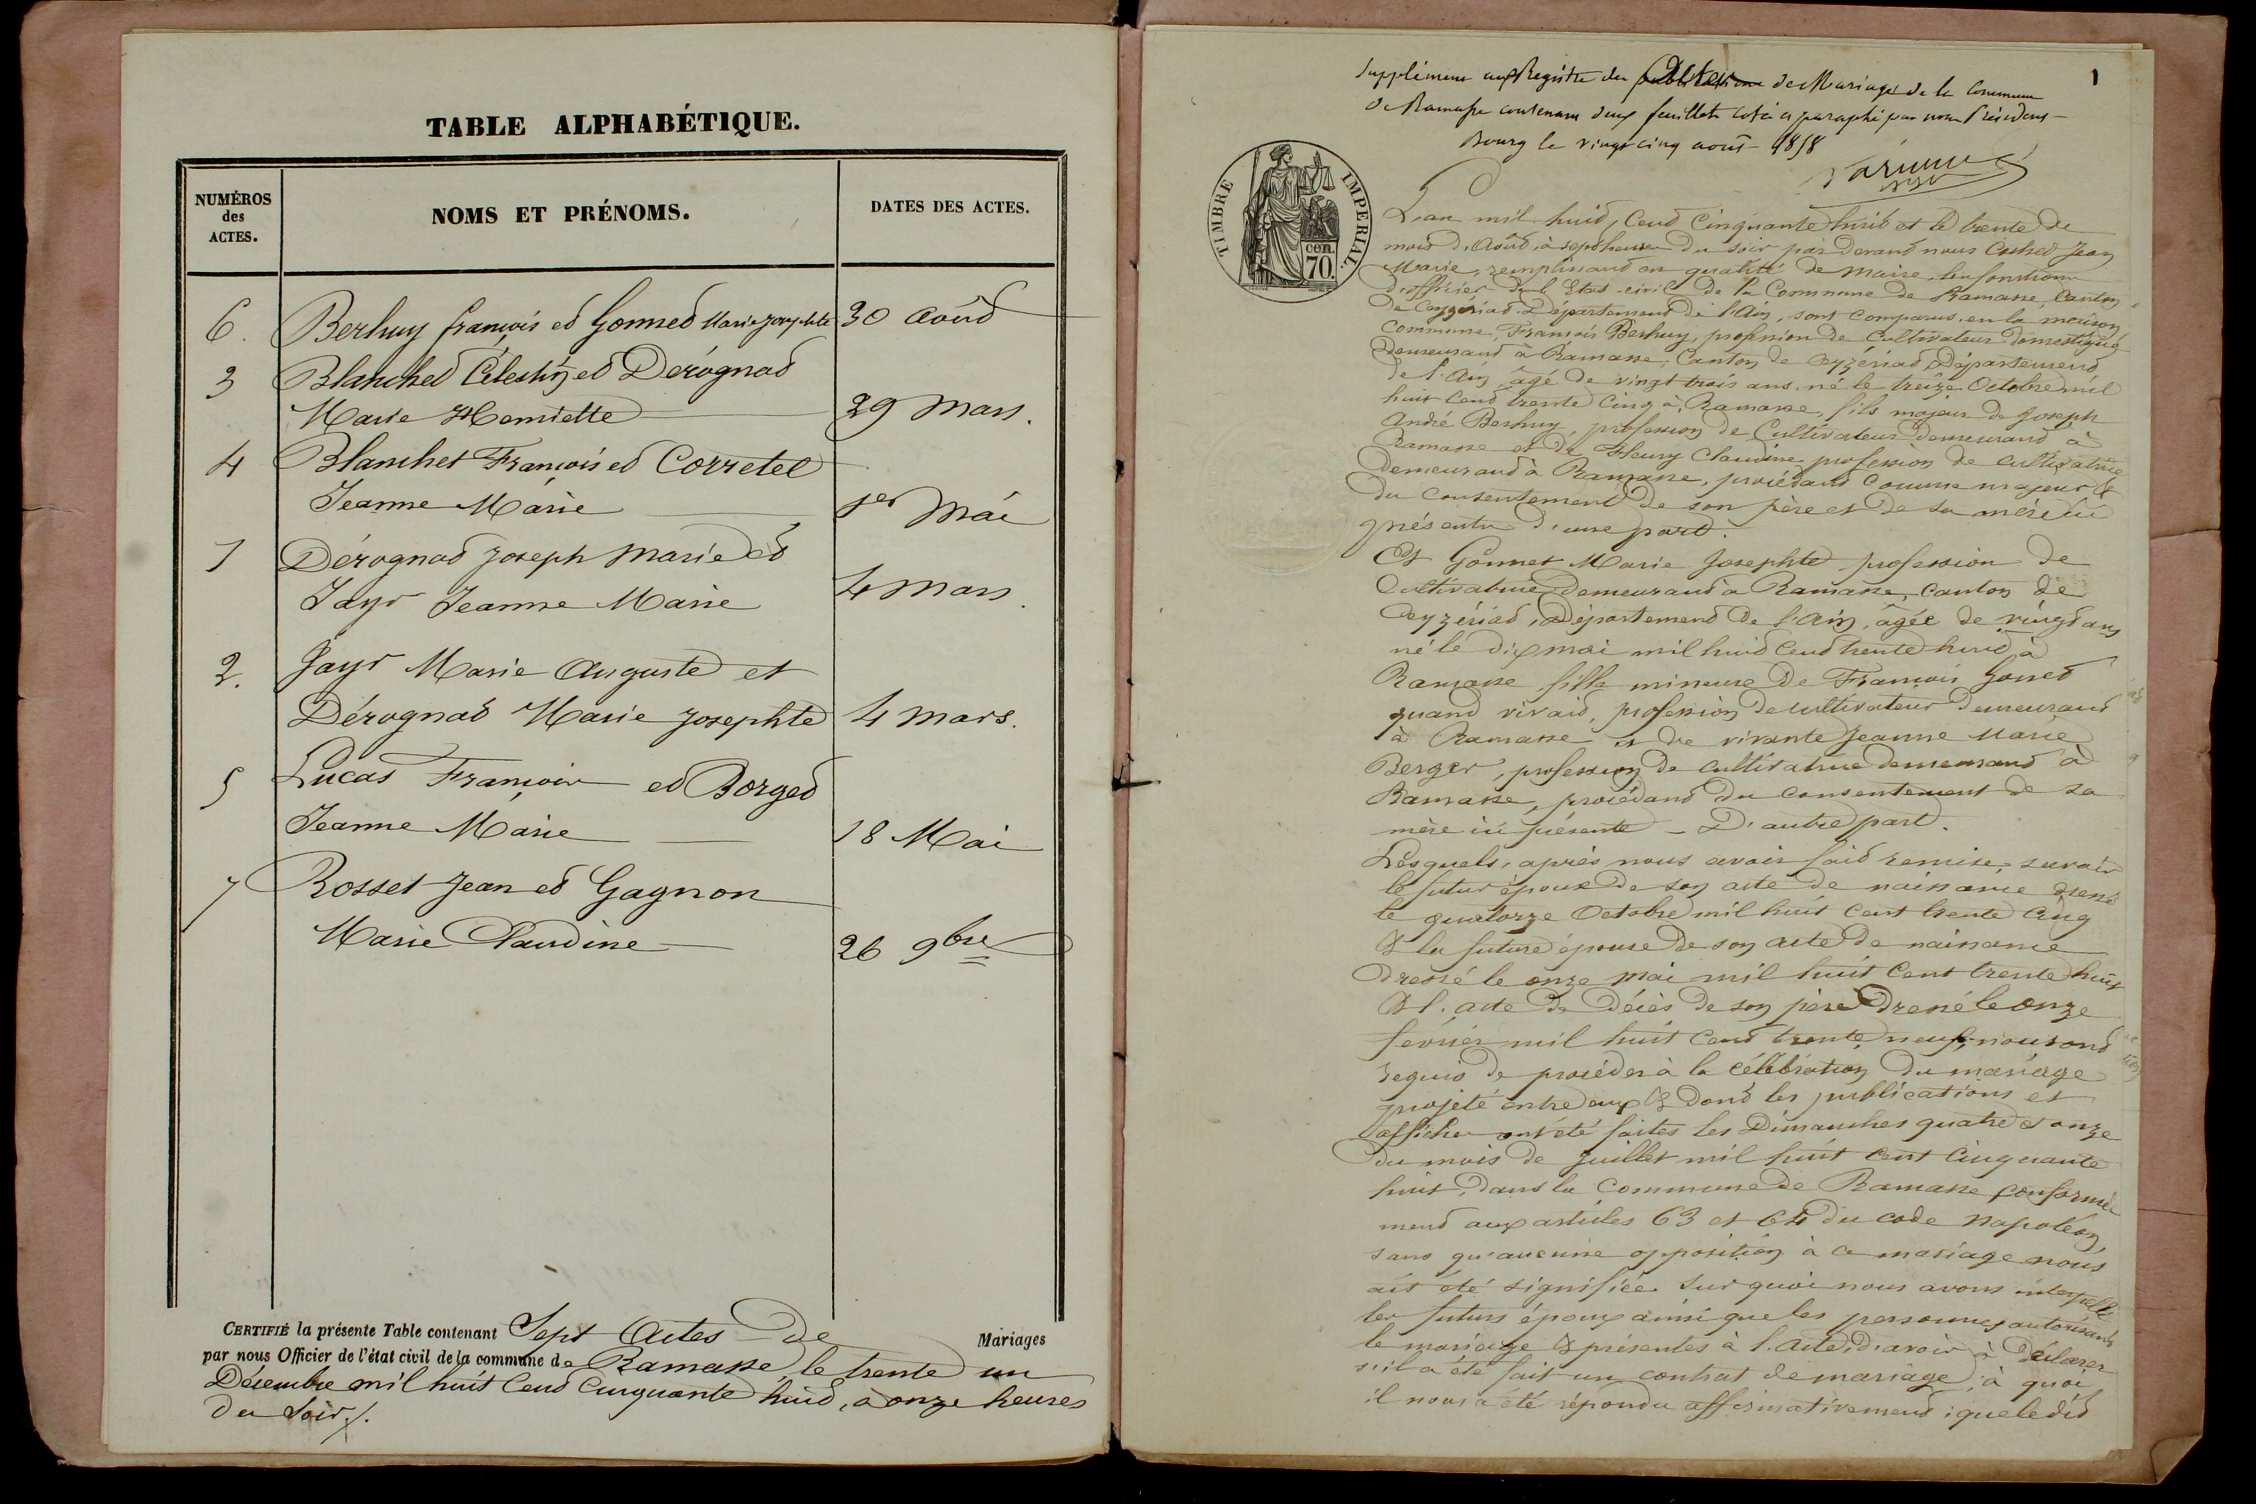 TABLE ALPHABÉTIQUE.
NUMÉROS
des
ACTES.
NOMS ET PRÉNOMS.
DATES DES ACTES.
6. Berhuy françois et Gonned Marie Josephte 30 Août
3 Blanched Célestin et Dérognad
Marie Henriette 29 Mars.
4 Blanchet François et Corretel
Jeanne Marie 1er Mai
1 Dérognad Joseph Marie et
Jayr Jeanne Marie 4 Mars.
2. Jayr Marie Auguste et
Dérognad Marie Josephte 4 Mars.
5 Lucas François et Borged
Jeanne Marie 18 Mai
7 Rosset Jean et Gagnon
Marie Claudine 26 9bre
CERTIFIÉ la présente Table contenant Sept Actes de Mariages
par nous Officier de l'état civil de la commune de Ramasse, le trente un
Décembre mil huit Cent Cinquante huit, à onze heures
du Soir.
1
Supplément au Registre des Actes de Mariage de la Commune
de Ramasse contenant deux feuillets coté et paraphé par nous Président
Bourg le vingt cinq août 1858
TIMBRE IMPERIAL.
cen.
70.
L'an mil huit Cent Cinquante huit et le trente de
mois d'Août, à sept heures du soir par devant nous Jean
Marie, remplissant en qualité de Maire, les fonctions
d'officier de l'Etat civil de la Commune de Ramasse, Canton
de Ceyzériad Département de l'Ain, sont comparus en la maison
Commune, François Berhuy, profession de Cultivateur domestique
demeurant à Ramasse, Canton de Ceyzériad Département
de l'Ain âgé de vingt trois ans, né le treize Octobre mil
huit Cent trente Cinq à Ramasse, fils majeur de Joseph
André Berhuy, profession de Cultivateur demeurant à
Ramasse et de Fleury Claudine profession de cultivatrice
demeurant à Ramasse, procédant comme majeur &
du consentement de son père et de sa mère ici
présents d'une part.
Et Gonnet Marie Josephte profession de
Cultivatrice demeurant à Ramasse, canton de
Ceyzériad, Département de l'Ain, âgée de vingt ans
né le dix mai mil huit Cent trente huit à
Ramasse fille mineure de François Gonned
quand vivait, profession de cultivateur demeurant
à Ramasse et de vivante Jeanne Marie
Berger, profession de cultivatrice demeurant à
Ramasse, procédant du consentement de sa
mère ici présente - D'autre part.
Lesquels, après nous avoir fait remise, savoir
le futur époux de son acte de naissance dressé
le quatorze Octobre mil huit cent trente Cinq
& la future épouse de son acte de naissance
dressé le onze mai mil huit Cent trente huit
& l'acte de décès de son père dressé le onze
février mil huit Cent trente neuf, nous ont
requis de procéder à la célébration du mariage
projeté entre eux & dont les publications et
affiches ont été faites les Dimanches quatre & onze
du mois de Juillet mil huit cent Cinquante
huit, dans la Commune de Ramasse conformé
ment aux articles 63 et 64 du code Napoléon,
sans qu'aucune opposition à ce mariage nous
ait été signifiée. Sur quoi nous avons interpellé
les futurs époux ainsi que les personnes autorisant
le mariage & présentes à l'Acte, d'avoir à déclarer
s'il a été fait un contrat de mariage, à quoi
il nous a été répondu affirmativement, que ledit